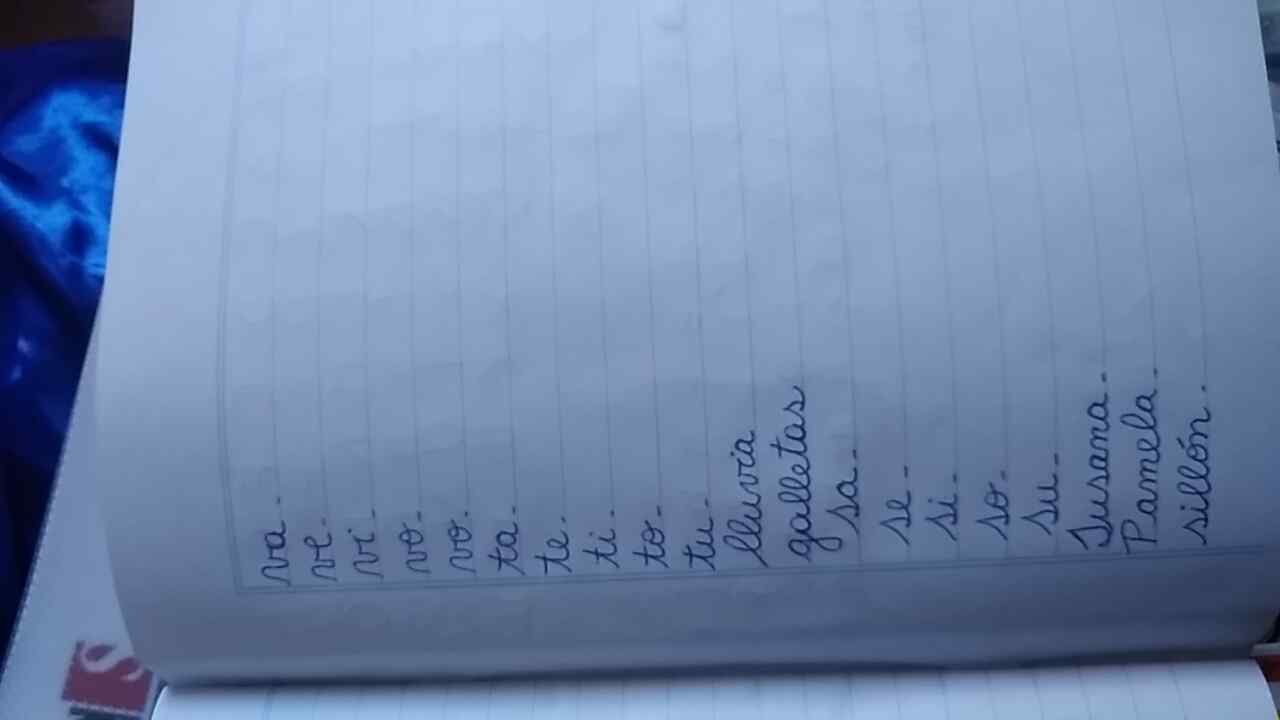 va-
ve-
vi-
vo-
vo-
ta-
te-
ti-
to-
tu-
lluvia
galletas
sa-
se-
si-
so-
su-
Susana-
Pamela-
sillón.
S